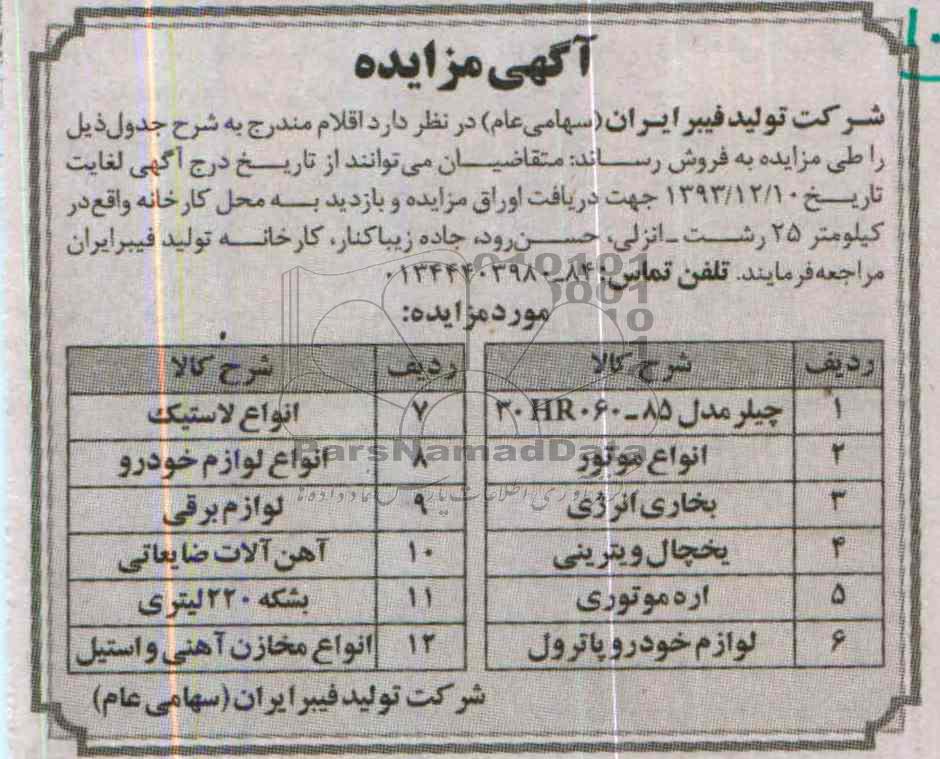 ۱۰
آگهی مزایده
شرکت تولید فیبر ایران (سهامی عام) در نظر دارد اقلام مندرج به شرح جدول ذیل
را طی مزایده به فروش رساند: متقاضیان می توانند از تاریخ درج آگهی لغایت
تاریخ ۱۳۹۳/۱۲/۱۰ جهت دریافت اوراق مزایده و بازدید به محل کارخانه واقع در
کیلومتر ۲۵ رشت ـ انزلی، حسن رود، جاده زیباکنار، کارخانه تولید فیبر ایران
مراجعه فرمایند. تلفن تماس: ۸۴ـ۰۱۳۴۴۴۰۳۹۸۰
مورد مزایده:
ردیف شرح کالا ردیف شرح کالا
۱ چیلر مدل ۸۵ـ۰۶۰ HR ۳۰ ۷ انواع لاستیک
۲ انواع موتور ۸ انواع لوازم خودرو
۳ بخاری انرژی ۹ لوازم برقی
۴ یخچال ویترینی ۱۰ آهن آلات ضایعاتی
۵ اره موتوری ۱۱ بشکه ۲۲۰ لیتری
۶ لوازم خودرو پاترول ۱۲ انواع مخازن آهنی و استیل
شرکت تولید فیبر ایران (سهامی عام)
ParsNamadData